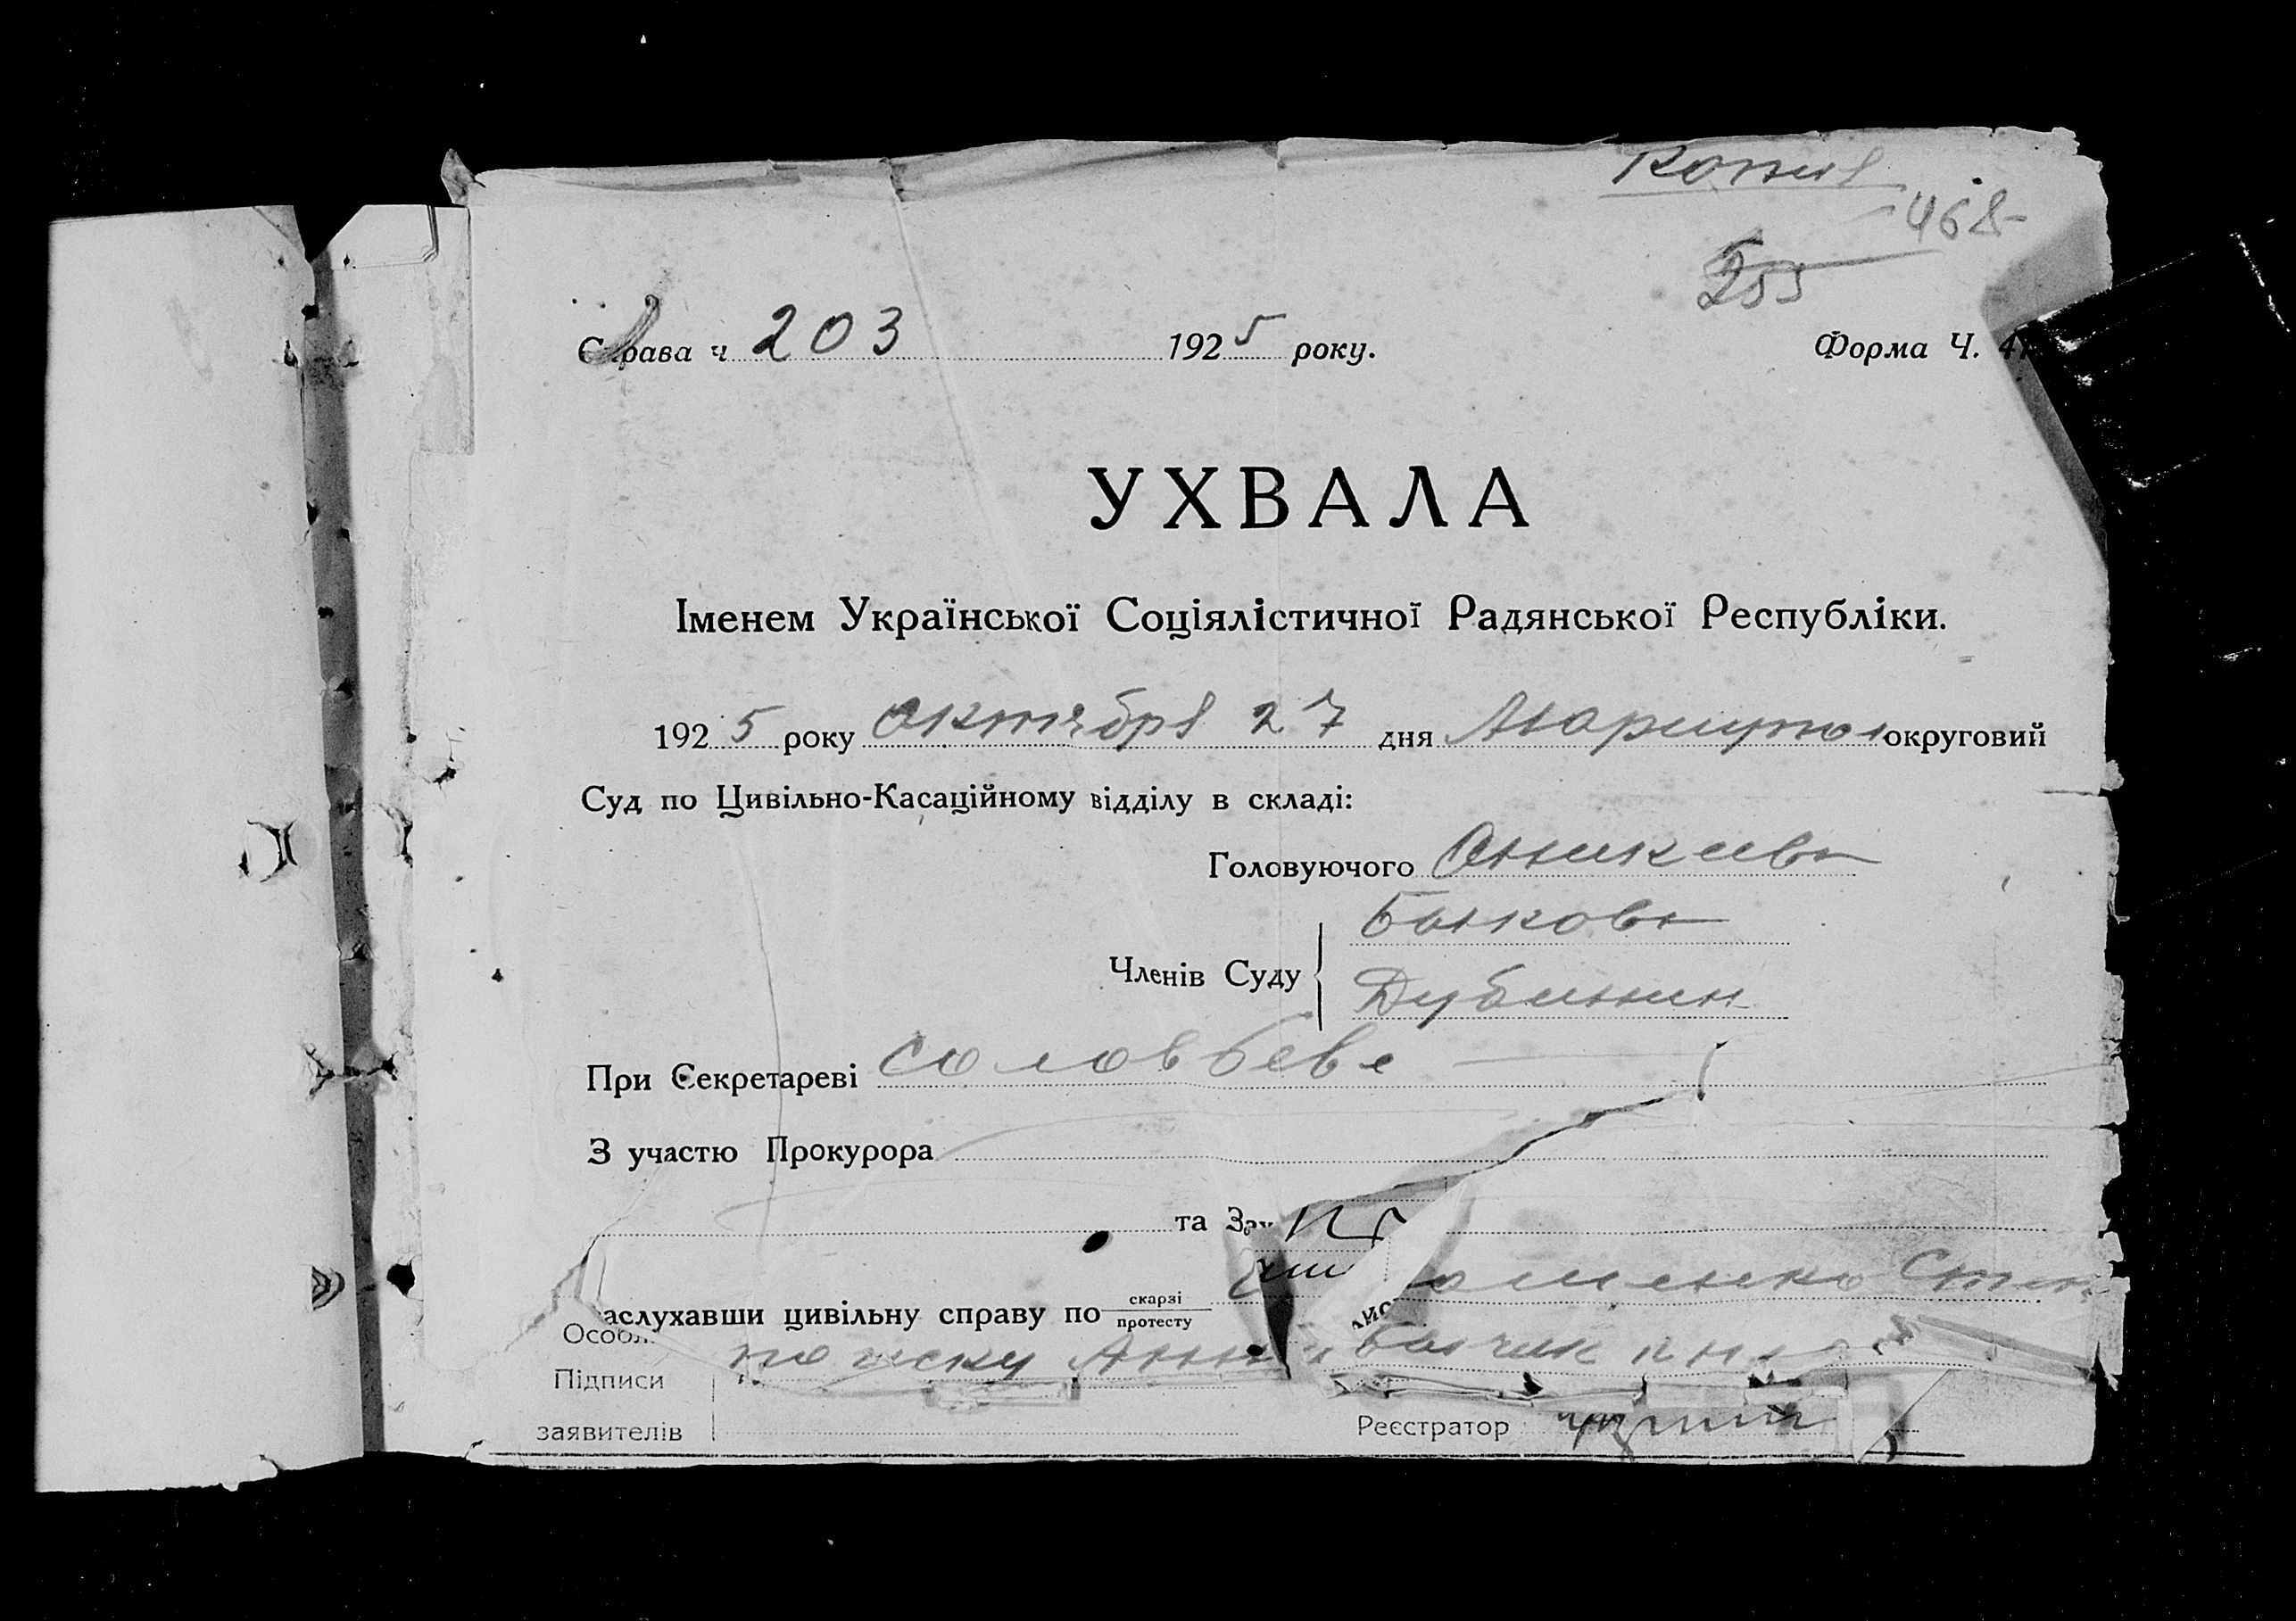 Копия
468
255
Справа ч 203 1925 року. Форма Ч. 4
УХВАЛА
Іменем Української Соціялістичної Радянської Республіки.
1925 року Октября 27 дня Мариупол округовий
Суд по Цивільно-Касаційному відділу в складі:
Головуючого Аникиева
Быкова
Членів Суду
Дубинин
При Секретареві Соловьеве
З участю Прокурора
та За
аслухавши цивільну справу по скарзі
протесту
Особл
по иску Анны
Підписи
заявителів
Реєстратор